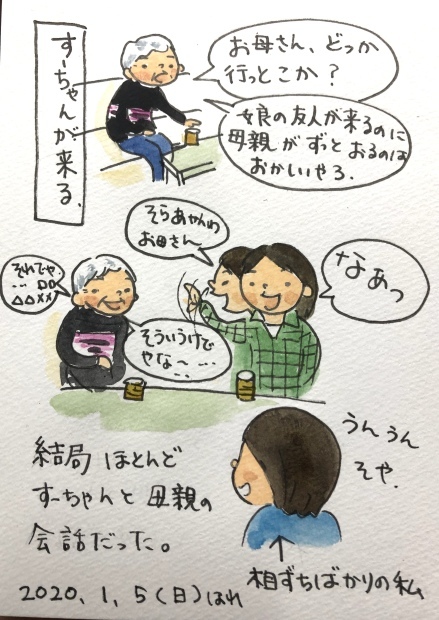 すーちゃんが来る。
お母さん、どっか
行っとこか?
娘の友人が来るのに
母親がずっとおるのは
おかしいやろ.
そらあかんわ
お母さん
なあっ
それでや.
… □□
△△××
そういうわけで
やな〜 … …
うんうん
そや.
結局 ほとんど
すーちゃんと母親の
会話だった。
相ずちばかりの私
2020、1、5(日)はれ